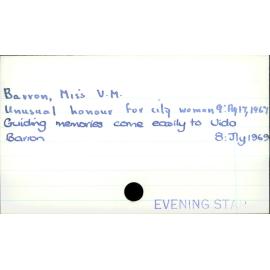 Barron, Miss V.M.
Unusual honour for city woman 9: Ag 17, 1967
Guiding memories come easily to Vida
Barron 8: Jly 1969
EVENING STAR